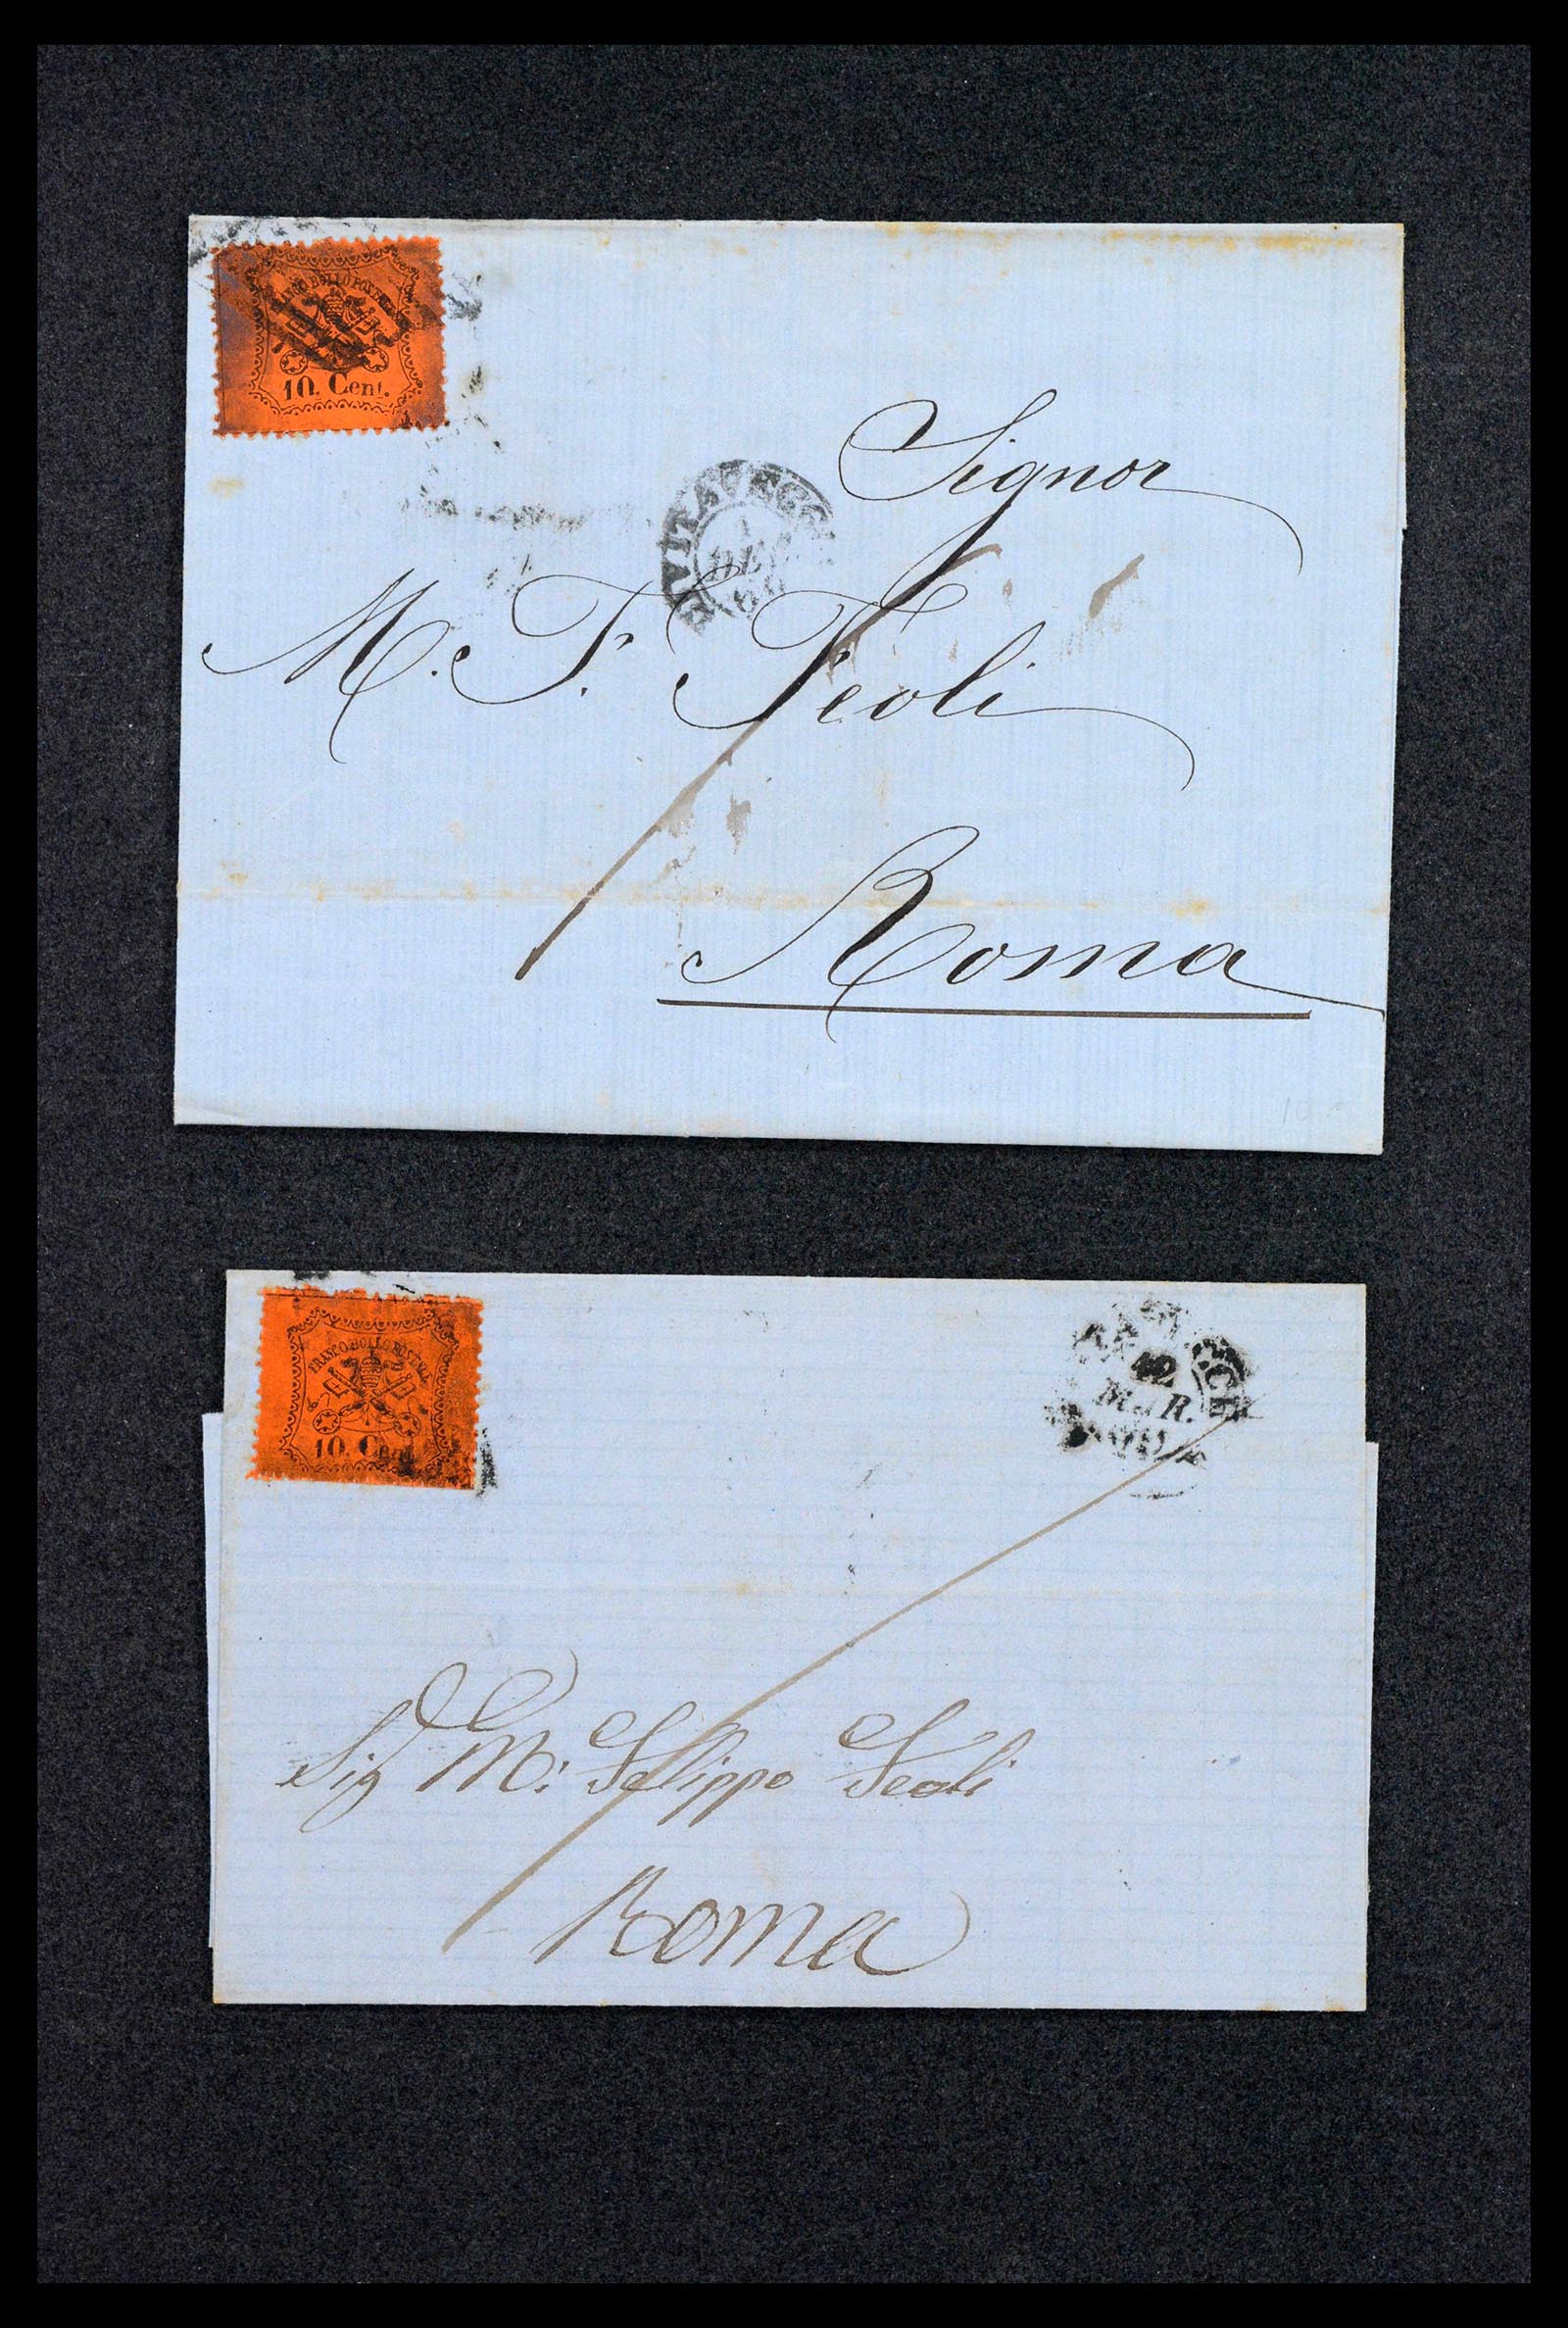 FRANCO BOLLO POSTALE
10. Cent.
Signor
M. F. Feoli
Roma
10
FRANCO BOLLO POSTALE
10. Cent.
12
MAR.
Sig M: Filippo Feoli
Roma